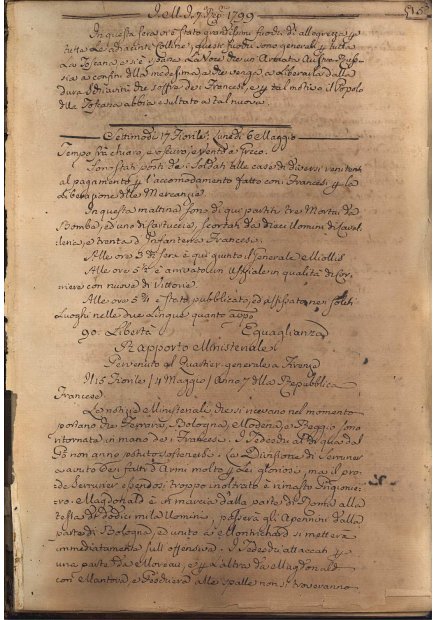 1799
In questa sera ore stati grandissimi fuochi di allegrezza per
tutte le distanti Colline, questi fuochi sono generali per tutta
la Toscana, e si è sparsa la Voce di un Armata Austro Rus-
sa a confini della medesima, che venga a liberarla dalla
dura schiavitù che soffre dei Francesi, e per tal motivo il Popolo
della Toscana abbia esultato a tal nuova.
Settimodì 17 Fiorile. Lunedì 6 Maggio
Tempo frà chiaro, e fosco, e vento a Greco.
Son stati posti dei Soldati alle case di diversi renitenti
al pagamento per l'accomodamento fatto con Francesi per la
liberazione delle Mercanzie.
In questa mattina sono di qui partiti tre Mortai da
Bomba, ed uno di cartuccie, scortati da dieci Uomini di Caval-
leria, e trenta d'Infanteria Francese.
Alle ore 3 sera è qui giunto il Generale Miollis
Alle ore 5 è arrivato un Uffiziale in qualità di Cor-
riere con nuove di Vittorie.
Alle ore 5 è stato pubblicato, ed affissato nei soliti
Luoghi nelle due Lingue quanto appo
Libertà Eguaglianza
Rapporto Ministeriale
Pervenuto al Quartier generale a Firenze
Il 15 Fiorile / 4 Maggio / Anno 7 della Repubblica
Francese
Le notizie Ministeriali che si ricevano nel momento
portano che Ferrara, Bologna, Modena, e Reggio sono
ritornata in mano dei Francesi. I Tedeschi al di qua del
Pò non anno potuto sostenersi. La Divisione di Serrurier
a avuto dei fatti d'Armi molto per lei gloriosi, ma il pro-
de Serrurier essendosi troppo inoltrato è rimasto Prigionie-
ro. Magdonald è in marcia dalla parte di Roma alla
testa di dodici mila Uomini, passerà gli Apennini dalla
parte di Bologna, ed unito a Montrichard si metterà
immediatamente sull'offensiva. I Tedeschi attaccati per
una parte da Moreau, e per l'altra da Magdonald
con Mantova, e Peschiera alle spalle non si troveranno